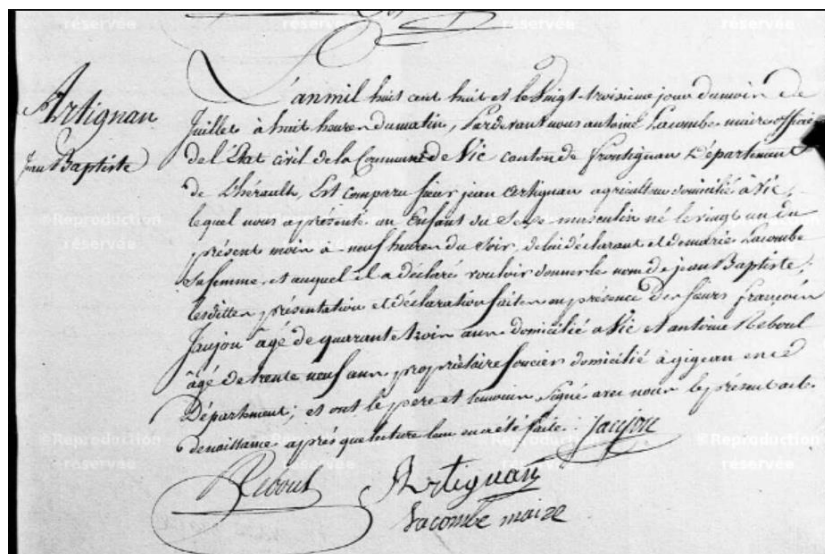 Artignan
Jean Baptiste
L'an mil huit cent huit et le vingt-troisieme jour du mois de
Juillet à huit heures du matin, Pardevant nous antoine Lacombe maire officier
de l'Etat civil de la Commune de Vic canton de Frontignan Département
de L'hérault, Est comparu sieur jean artignan agriculteur domicilié à Vic,
lequel nous a présenté un Enfant du Sexe masculin né le vingt un du
présent mois à neuf heures du Soir, de lui déclarant et de marie Lacombe
Sa femme, et auquel il a déclaré vouloir donner le nom de jean Baptiste;
lesdittes présentation et déclaration faites en présence des sieurs françois
Jaujou âgé de quarante trois ans domicilié à Vic et antoine Reboul
âgé de trente neuf ans propriétaire foncier domicilié à gigean en ce
Département; et ont le pere et temoins signé avec nous le présent acte
de naissance après que lecture leur en a été faite. Jaujou
Reboul Artignan
Lacombe maire
©Reproduction
réservée
©Reproduction
réservée
©Reproduction
réservée
©Reproduction
réservée